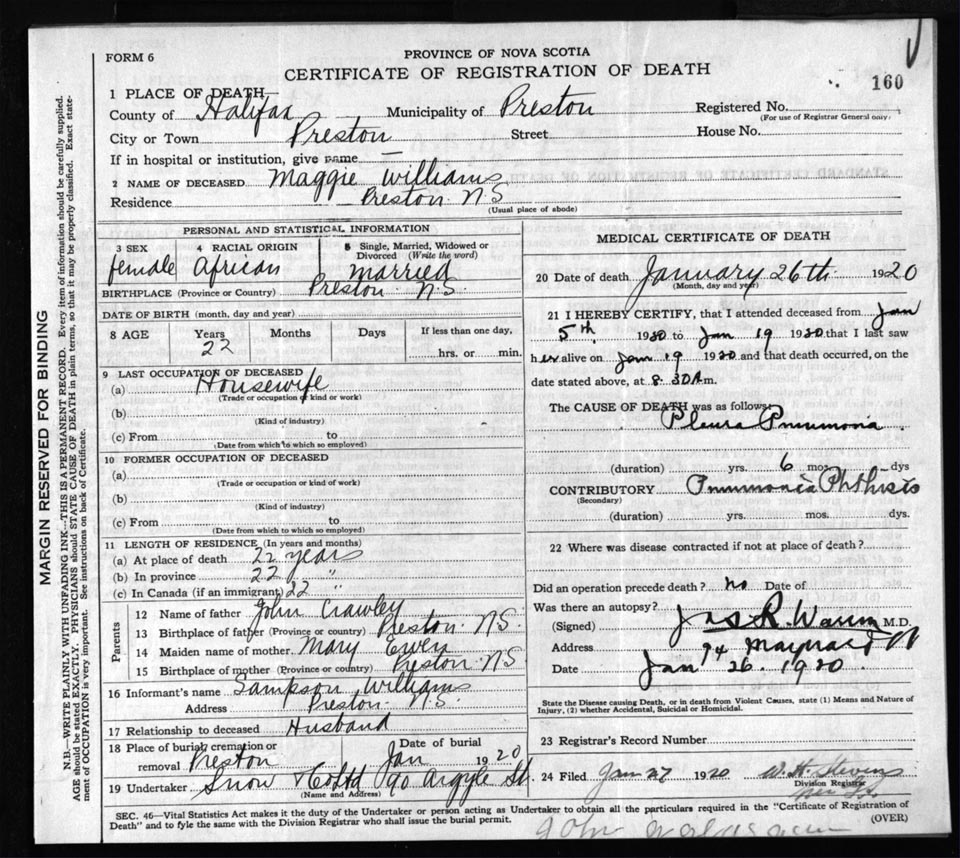 FORM 6
PROVINCE OF NOVA SCOTIA
CERTIFICATE OF REGISTRATION OF DEATH
160
1 PLACE OF DEATH
County of Halifax Municipality of Preston Registered No.
(For use of Registrar General only.)
City or Town Preston Street House No.
If in hospital or institution, give name —
2 NAME OF DECEASED Maggie Williams
Residence Preston N.S
(Usual place of abode)
PERSONAL AND STATISTICAL INFORMATION
3 SEX 4 RACIAL ORIGIN 5 Single, Married, Widowed or
Divorced (Write the word)
female African Married
BIRTHPLACE (Province or Country) Preston N.S.
DATE OF BIRTH (month, day and year)
8 AGE Years Months Days If less than one day,
22 hrs. or min.
9 LAST OCCUPATION OF DECEASED
(a) Housewife
(Trade or occupation or kind or work)
(b)
(Kind of industry)
(c) From to
(Date from which to which so employed)
10 FORMER OCCUPATION OF DECEASED
(a)
(Trade or occupation or kind of work)
(b)
(Kind of industry)
(c) From to
(Date from which to which so employed)
11 LENGTH OF RESIDENCE (In years and months)
(a) At place of death 22 years
(b) In province 22 "
(c) In Canada (if an immigrant) 22 "
Parents
12 Name of father John Crawley
13 Birthplace of father (Province or country) Preston N.S.
14 Maiden name of mother Mary
15 Birthplace of mother (Province or country) Preston N.S
16 Informant's name Sampson Williams
Address Preston N.S.
17 Relationship to deceased Husband
18 Place of burial cremation or Date of burial
removal Preston Jan 1920
19 Undertaker Snow & Co Ltd 90 Argyle St
(Name and Address)
MEDICAL CERTIFICATE OF DEATH
20 Date of death January 26th 1920
(Month, day and year)
21 I HEREBY CERTIFY, that I attended deceased from Jan
5th 1920 to Jan 19 1920 that I last saw
her alive on Jan 19 1920 and that death occurred, on the
date stated above, at 8.30 A m.
The CAUSE OF DEATH was as follows:
Pleura Pnumona
(duration) yrs. 6 mos. dys
CONTRIBUTORY Pnumonia Phthisis
(Secondary)
(duration) yrs. mos. dys.
22 Where was disease contracted if not at place of death?
Did an operation precede death? no Date of
Was there an autopsy?
(Signed) Jas R. M.D.
Address 74 Maynard
Date Jan 26 1920
State the Disease causing Death, or in death from Violent Causes, state (1) Means and Nature of
Injury, (2) whether Accidental, Suicidal or Homicidal.
23 Registrar's Record Number
24 Filed Jan 27 1920 W. H. Stevens
Division Registrar
SEC. 46—Vital Statistics Act makes it the duty of the Undertaker or person acting as Undertaker to obtain all the particulars required in the "Certificate of Registration of
Death" and to fyle the same with the Division Registrar who shall issue the burial permit.
(OVER)
John
MARGIN RESERVED FOR BINDING
N.B.—WRITE PLAINLY WITH UNFADING INK—THIS IS A PERMANENT RECORD. Every item of information should be carefully supplied.
AGE should be stated EXACTLY. PHYSICIANS should STATE CAUSE OF DEATH in plain terms, so that it may be properly classified. Exact state-
ment of OCCUPATION is very important. See instructions on back of Certificate.